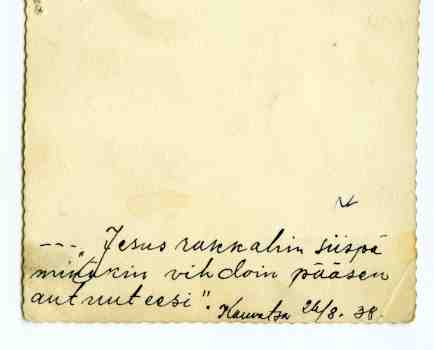 ---, Jesus rakkahin siispä
minäkin vihdoin pääsen
autuuteesi".
Kauvatsa 26/8. 38.